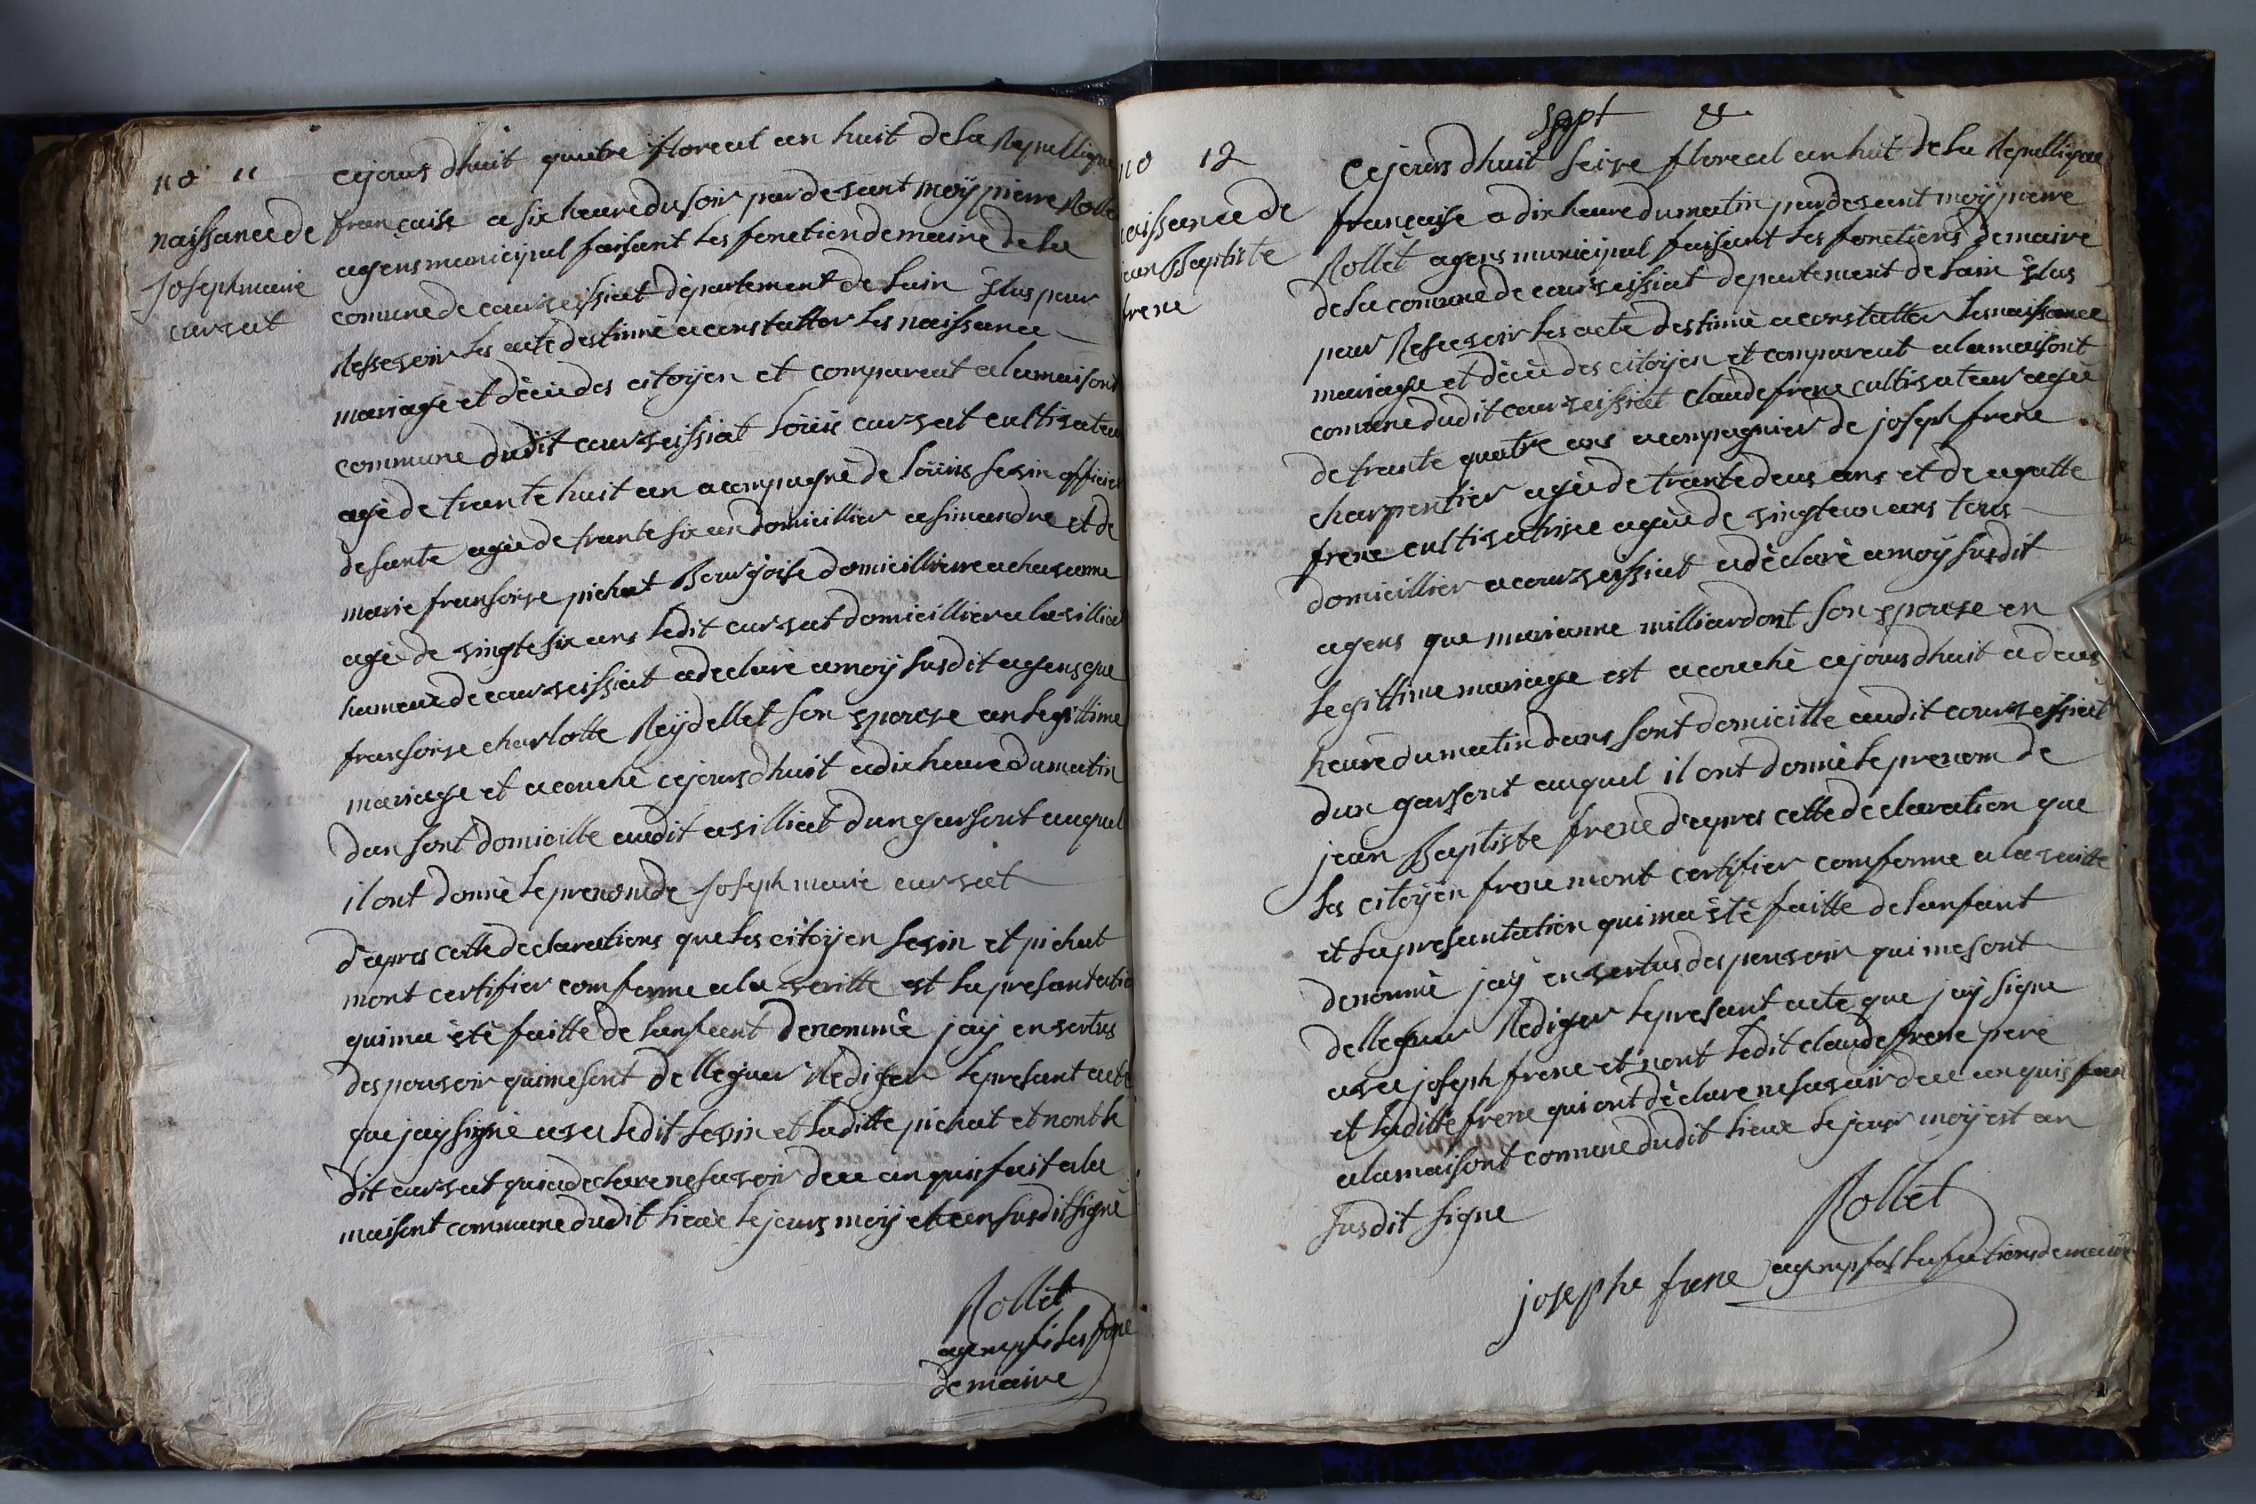 no 11
naissance de
Joseph marie
curvat
cejours dhuit quatre floreal an huit de la Republique
française a six heure du soir par devant moÿ pierre Rollet
agens municipal faisant les fonction de maire de la
comune de courveissiat département de lain êlus pour
Ressevoir les acte destinné a constatter les naissance
mariage et décè des citoÿen et compareut a la maisont
commune dudit courveissiat Loüis curvat cultivateur
agé de trante huit an acompagné de Loüiis Sevin officier
de sante agéé de trante six an domicillier a simandre et de
marie fransoise pichat Bourgoise domicilliere a chavanne
agé de vingte six ans Ledit curvat domicillier a la villiat
hameau de courveissiat a declaré a moÿ susdit agens que
fransoise charlotte Reÿdellet son epouse an legittime
mariage et acouché cejours dhuit a dix heure du matin
dan sont domicille audit avilliat dun garsont auquel
il ont donné le prenom de Joseph marie curvat
d'apres cette declarations que les citoÿen Sevin et pichat
mont certifier comforme a la veritte est la presantation
qui ma été faitte de lanfant denommé jaÿ en vertus
des pouvoir qui me sont delleguer Rediger le presant acte
que jaÿ signé avec ledit Sevin et laditte pichat et nont le
dit curvat qui a declare ne savoir de ce anquis fait a la
maisont commune dudit lieux le jours moÿ et an susdit signé
Rollet
agemp fs les fone
de maire
sept 8
no 12
naissance de
jean Baptiste
frene
Cejours dhuit seize floreal an huit de la Republique
française a dix heure du matin par devant moÿ pierre
Rollet agens municipal faisant les fonctions de maire
de la comune de courveissiat departement de lain êlus
pour Resevoir les acte destinné a constatter les naissance
mariage et décè des citoÿen et compareut a la maisont
comune dudit courveissiat claude frene cultivateur agée
de trante quatre ans acompagnier de joseph frene
charpentier agée de trante deus ans et de agatte
frene cultivatrise agéé de vingteun ans tous
domicillier a courveissiat a déclaré a moÿ susdit
agens que marianne milliardont son epouse en
legittime mariage est acouché cejours dhuit a deus
heure du matin dans sont domicille audit courveissiat
dun garsont auquel il ont donné le prenom de
jean Baptiste frene d'apres cette declaration que
les citoÿen frene mont certifier comforme a la veritte
et la presantation qui ma été faitte de lanfant
denommé jaÿ en vertus des pouvoir qui me sont
delleguer Rediger le presant acte que jaÿ signe
avec joseph frene et nont ledit claude frene pere
et laditte frene qui ont déclare ne savoir de ce anquis fait
a la maisont comune dudit lieux le jour moÿ est an
susdit signe
Rollet
josephe frene agemp fas la fontions de maire